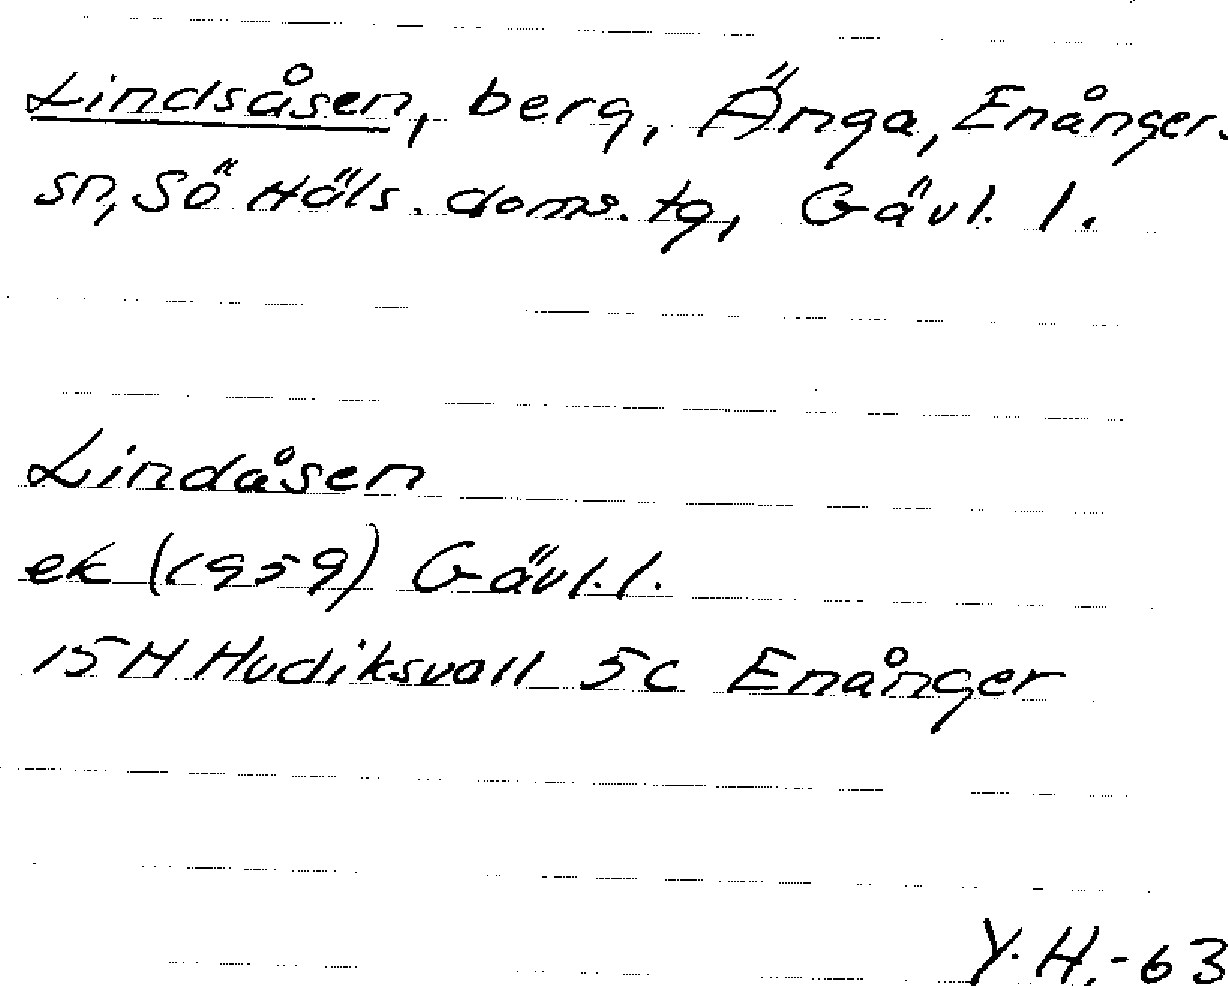 Lindsåsen, berg, Änga, Enånger.
sn, Sö Häls. doms. tg, Gävl. l.
Lindåsen
ek (1959) Gävl. l.
15H Hudiksvall 5c Enånger
Y. H. -63